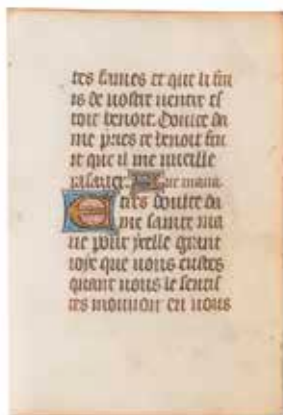 tes fames et que li fru
is de vostre ventre es
toit benoit. Douce da
me pries ce benoit fru
it que il me vueille
pasanter. Aue maria.
E tres doulce da
me sainte ma
rie pour ycelle grant
ioye que vous eustes
quant vous le sentis
tes mouuoir en vous